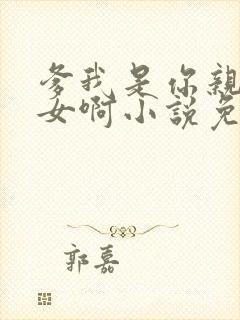 爹我是你親
女啊小説免
郭嘉